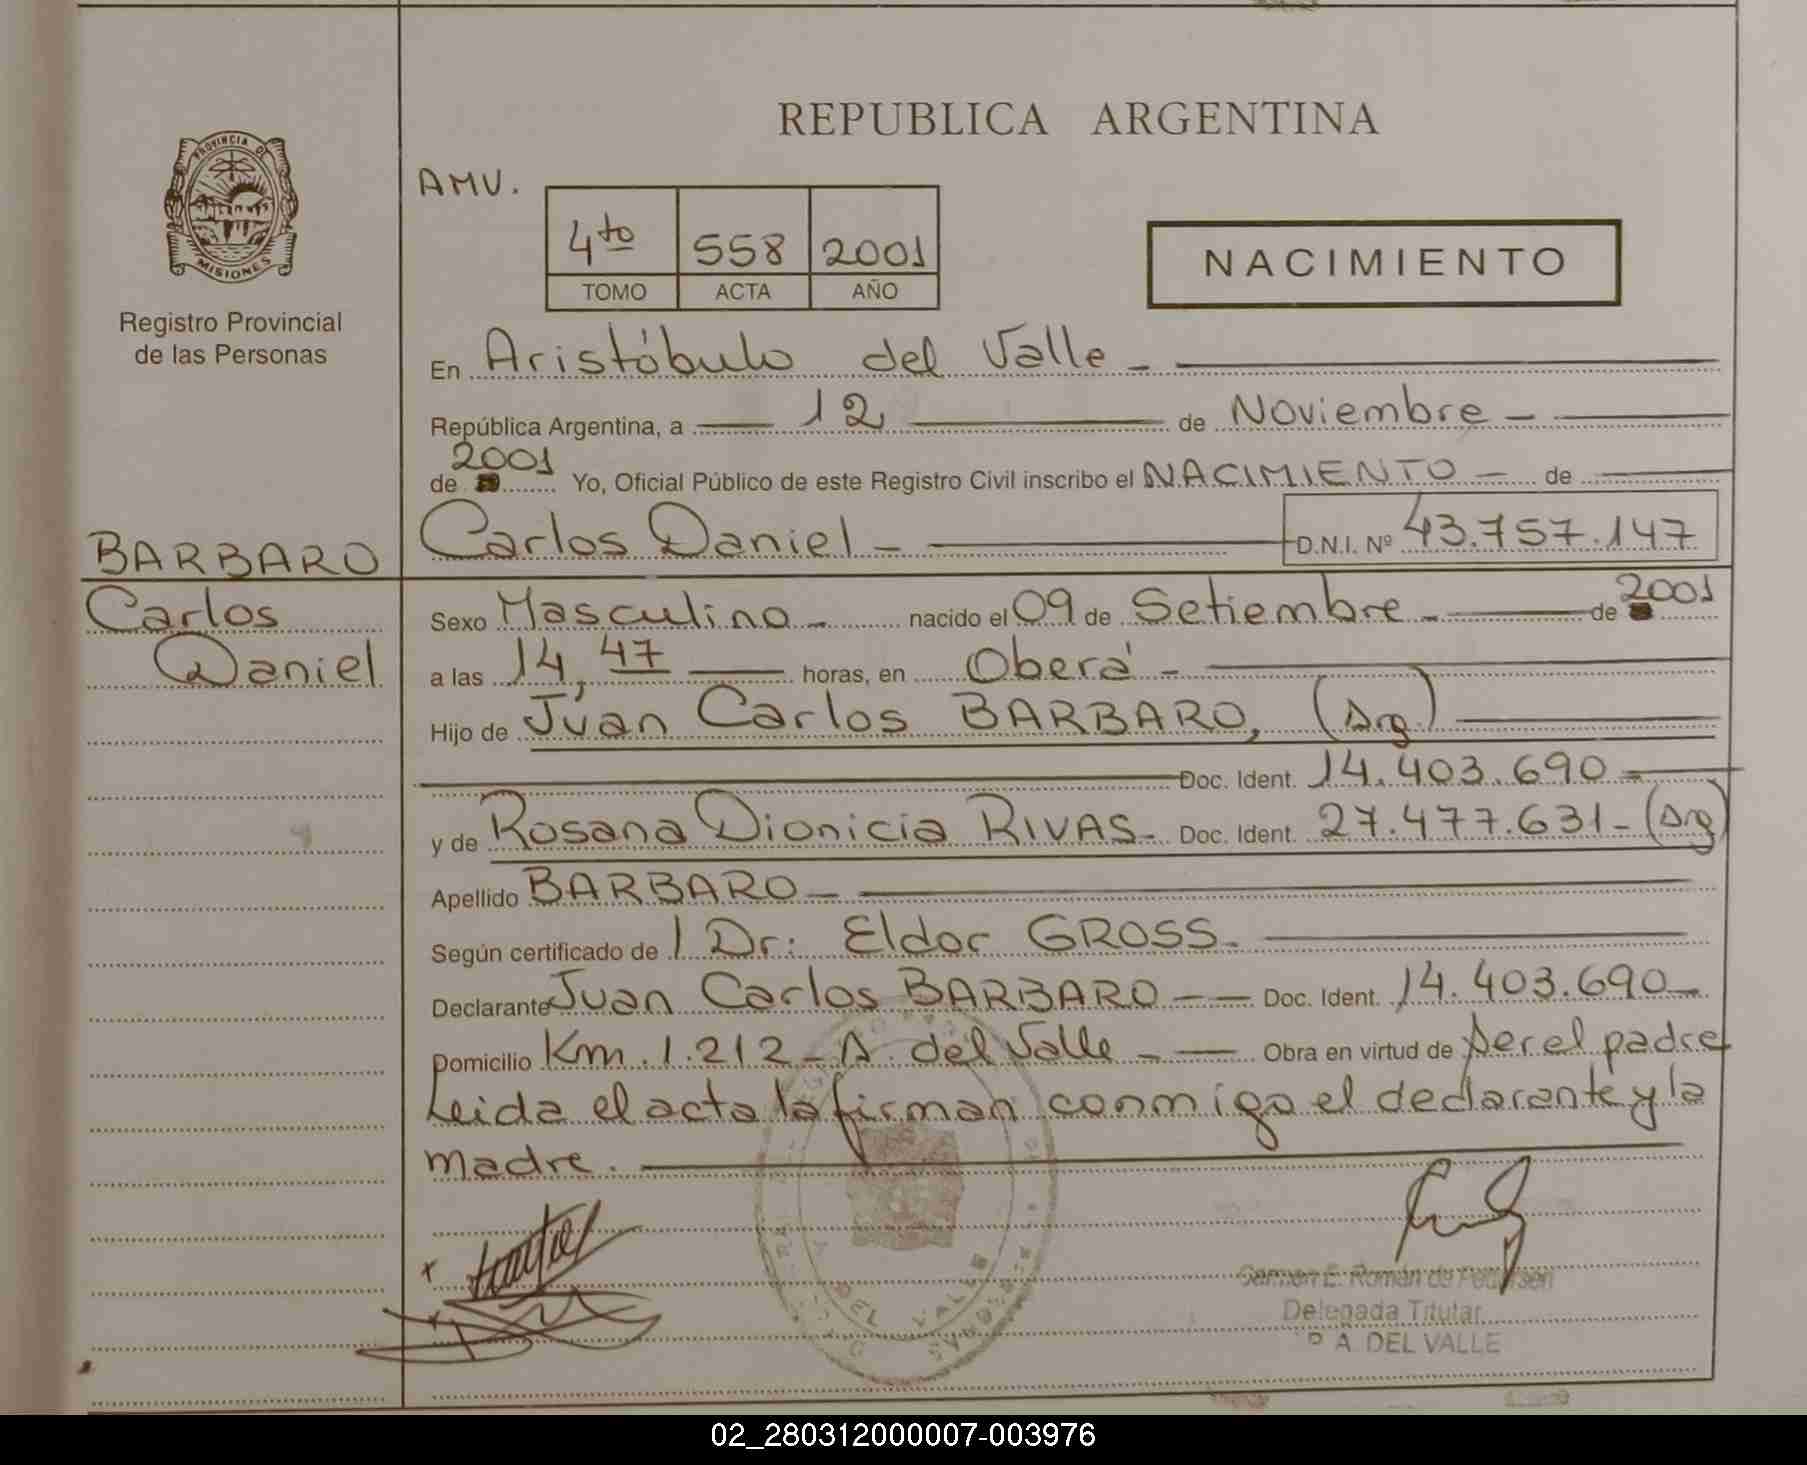 REPUBLICA ARGENTINA
PROVINCIA DE
MISIONES
Registro Provincial
de las Personas
AMV.
4to 558 2001
TOMO ACTA AÑO
NACIMIENTO
En Aristóbulo del Valle -
República Argentina, a 12 de Noviembre -
2001
de Yo, Oficial Público de este Registro Civil inscribo el NACIMIENTO - de
Carlos Daniel - D.N.I. Nº 43.757.147
BARBARO
Carlos
Daniel
Sexo Masculino - nacido el 09 de Setiembre - de 2001
a las 14,47 horas, en Oberá -
Hijo de Juan Carlos BARBARO, (Arg.)
Doc. Ident. 14.403.690 -
y de Rosana Dionicia RIVAS - Doc. Ident. 27.477.631 - (Arg)
Apellido BARBARO -
Según certificado de Dr: Eldor GROSS -
Declarante Juan Carlos BARBARO - - Doc. Ident. 14.403.690 -
Domicilio Km. 1.212 - A. del Valle - - Obra en virtud de ser el padre
Leida el acta la firman conmigo el declarante y la
madre.
DEL VALLE
Carmen E. Román de Pedersen
Delegada Titular
A. DEL VALLE
02_280312000007-003976